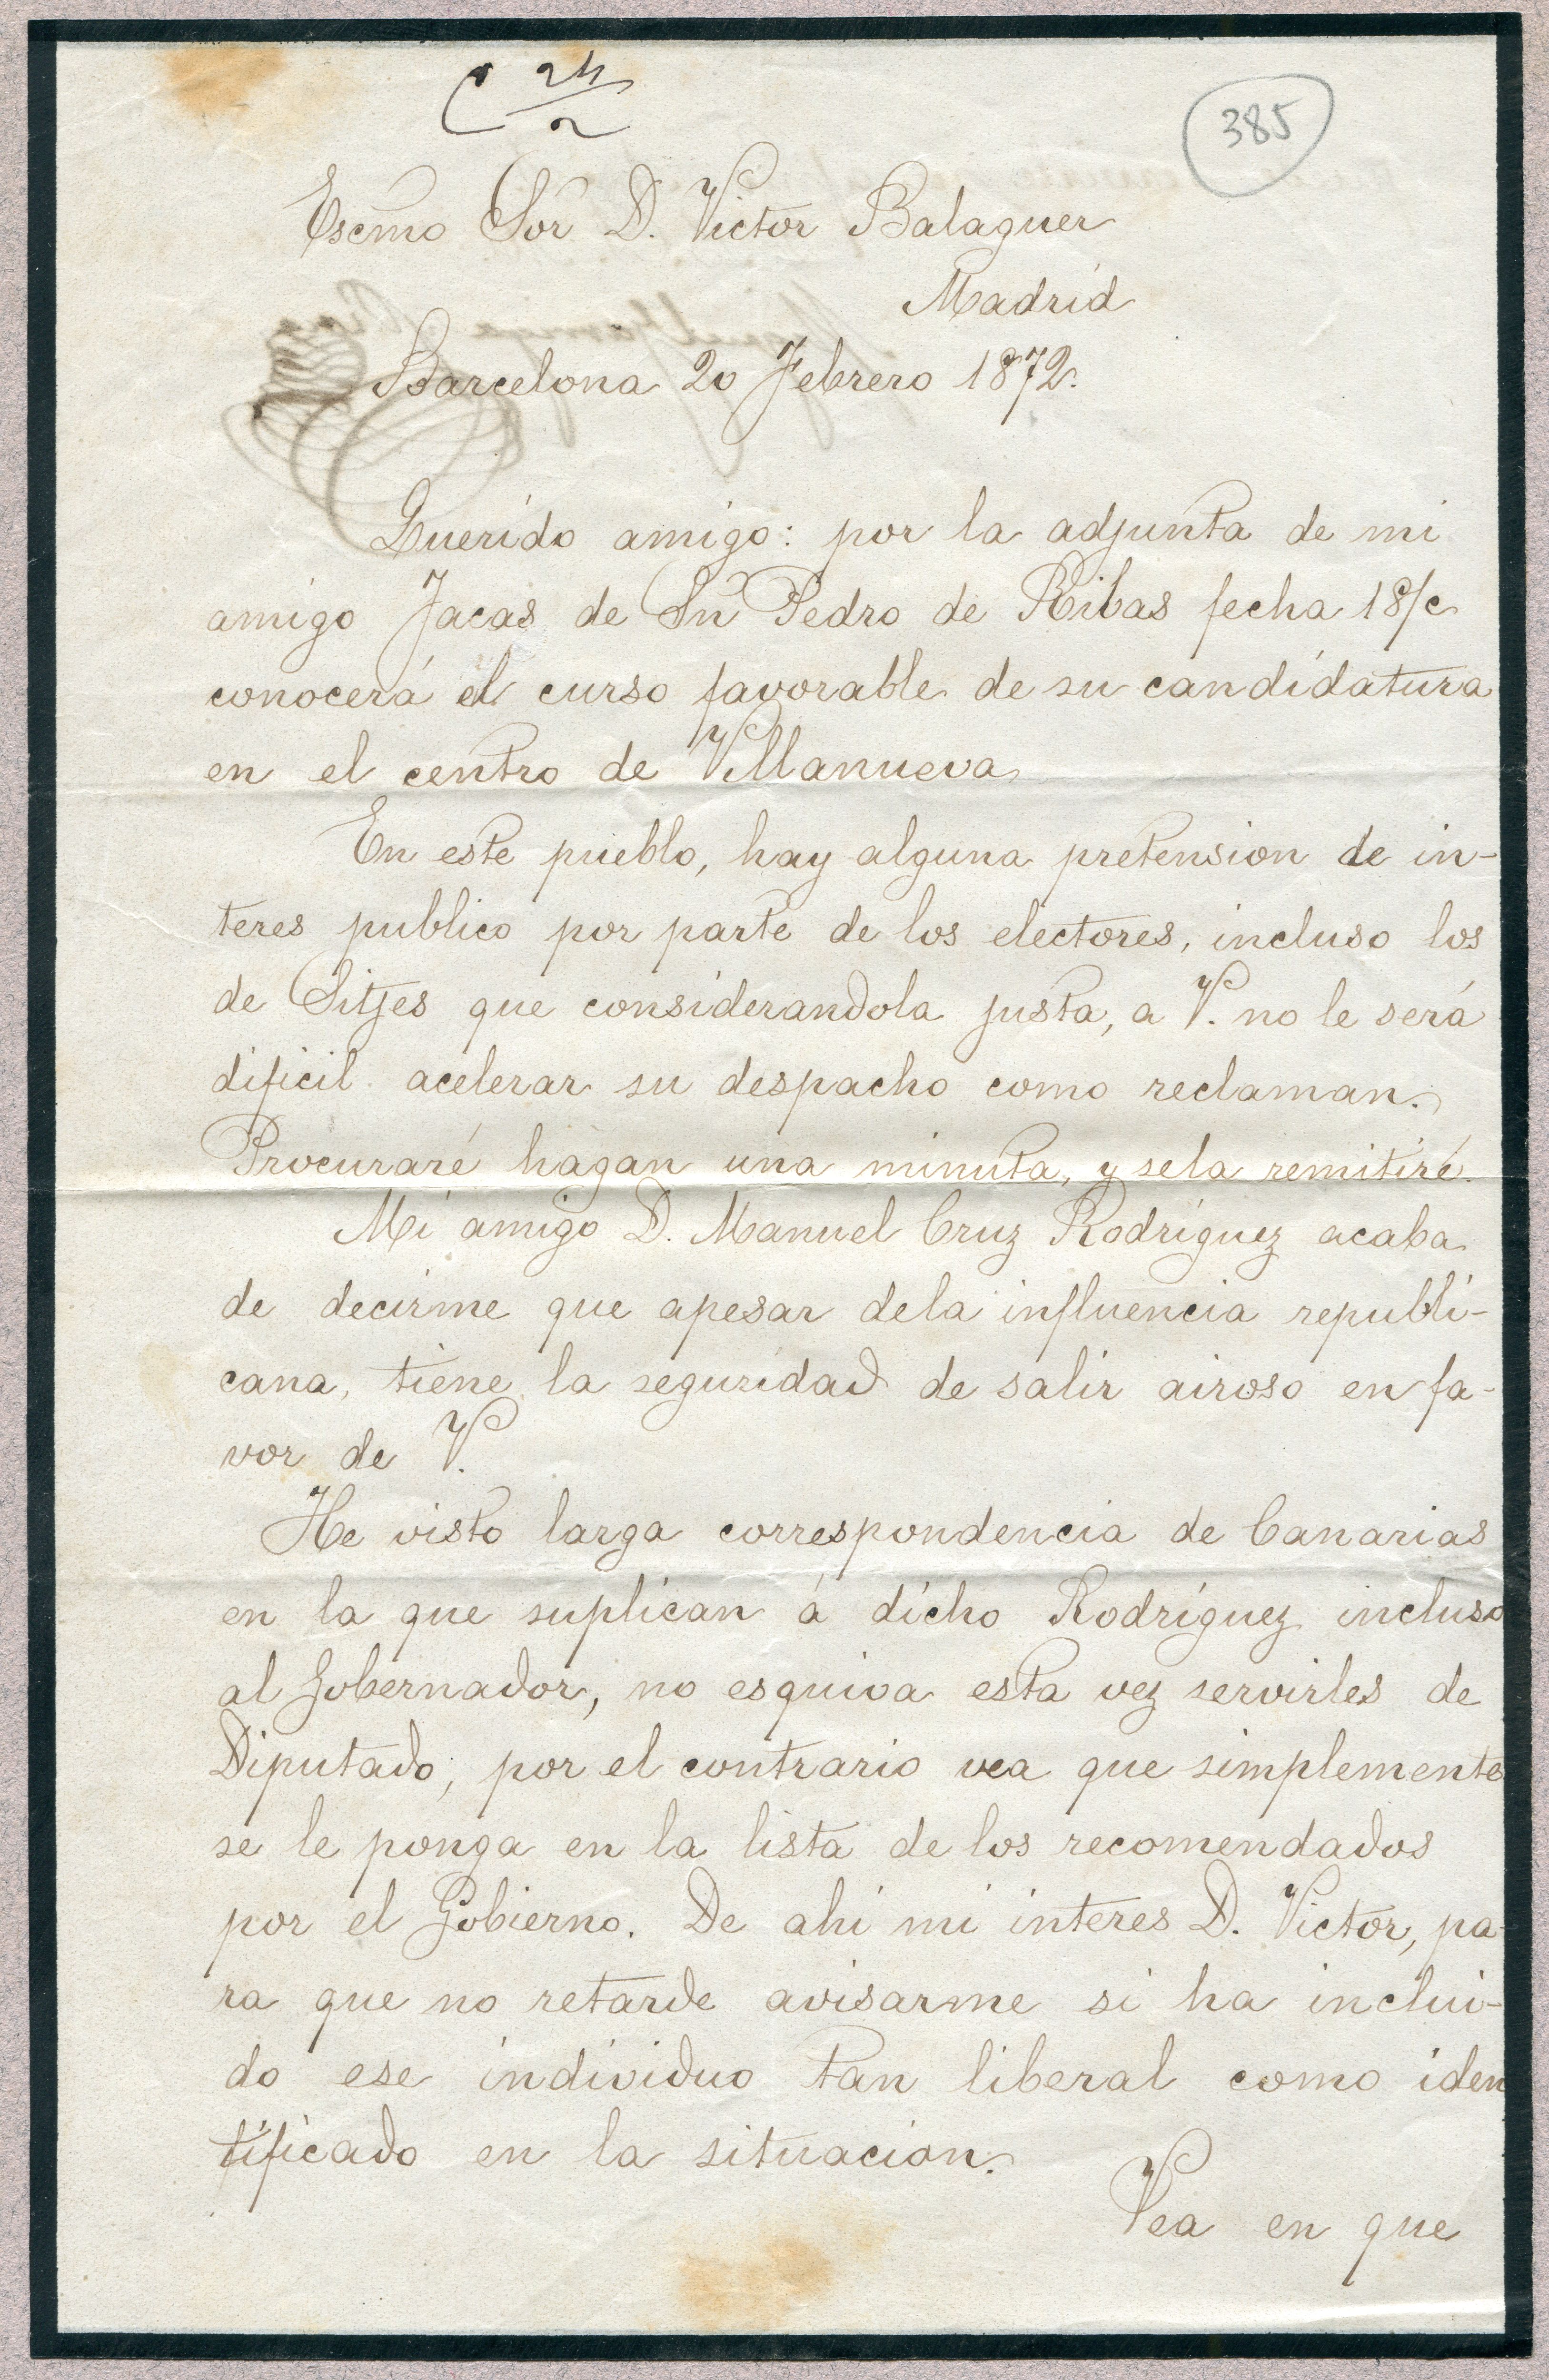 C 24/2
385
Escmo Sor D. Victor Balaguer
Madrid
Barcelona 20 Febrero 1872.
Querido amigo: por la adjunta de mi
amigo Jacas de Sn Pedro de Ribas fecha 18/c
conocerá el curso favorable de su candidatura
en el centro de Villanueva
En este pueblo, hay alguna pretension de in-
teres publico por parte de los electores, incluso los
de Sitjes que considerandola justa, a V. no le será
dificil acelerar su despacho como reclaman.
Procuraré hagan una minuta, y sela remitiré.
Mi amigo D. Manuel Cruz Rodriguez acaba
de decirme que apesar dela influencia republi-
cana, tiene la seguridad de salir airoso en fa-
vor de V.
He visto larga correspondencia de Canarias
en la que suplican á dicho Rodriguez incluso
al Gobernador, no esquiva esta vez servirles de
Diputado; por el contrario vea que simplemente
se le ponga en la lista de los recomendados
por el Gobierno. De ahi mi interes D. Victor, pa-
ra que no retarde avisarme si ha inclui-
do ese individuo tan liberal como iden
tificado en la situacion.
Vea en que